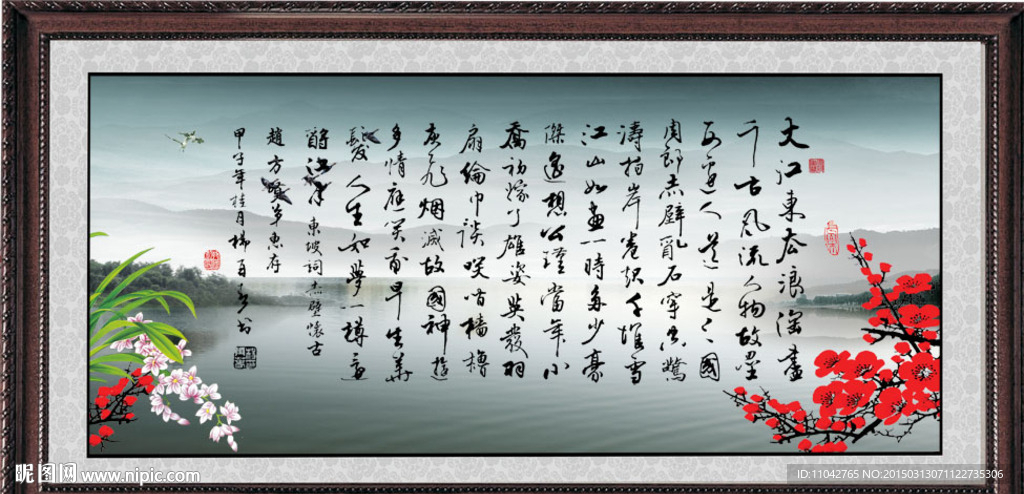 大江東去浪淘盡
千古風流人物故壘
西邊人道是三國
周郎赤壁亂石穿空驚
濤拍岸卷起千堆雪
江山如畫一時多少豪
傑遙想公瑾當年小
喬初嫁了雄姿英發羽
扇綸巾談笑間檣櫓
灰飛烟滅故國神遊
多情應笑我早生華
髮人生如夢一樽還
酹江月 東坡詞赤壁懷古
趙方 惠存
甲子年桂月楊百
昵图网 www.nipic.com
ID:11042765 NO:20150313071122735306